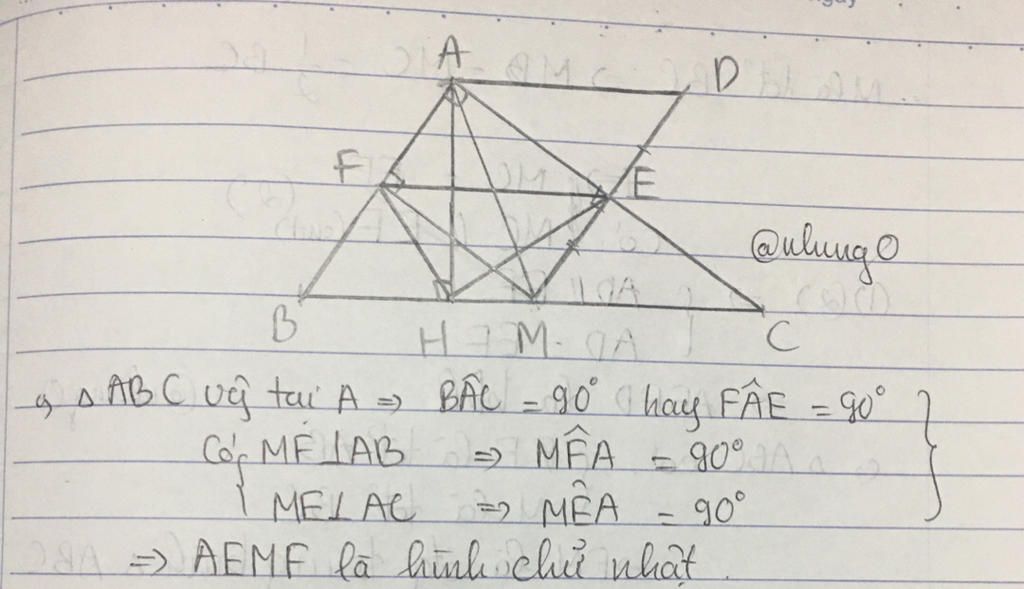 A
D
F
E
@nhung0
B
H
M
C
a, △ABC vg̃ tại A ⇒ BÂC = 90° hay FÂE = 90°
Có, MF⊥AB ⇒ MF̂A = 90°
ME⊥AC ⇒ MÊA = 90°
⇒ AEMF là hình chữ nhật.